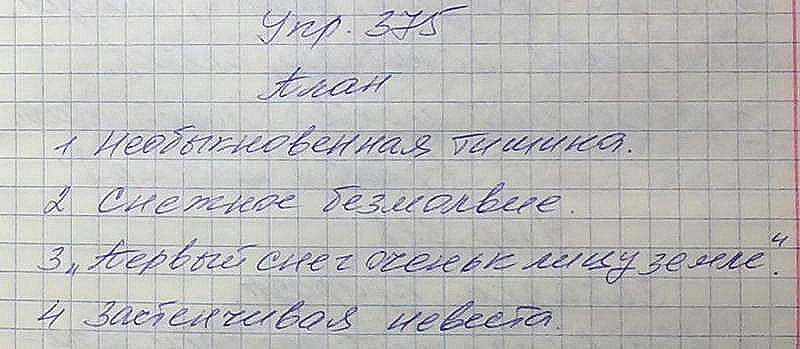 Упр. 375
План
1 Необыкновенная тишина.
2 Снежное безмолвие.
3 „Первый снег очень к лицу земле“.
4 Застенчивая невеста.